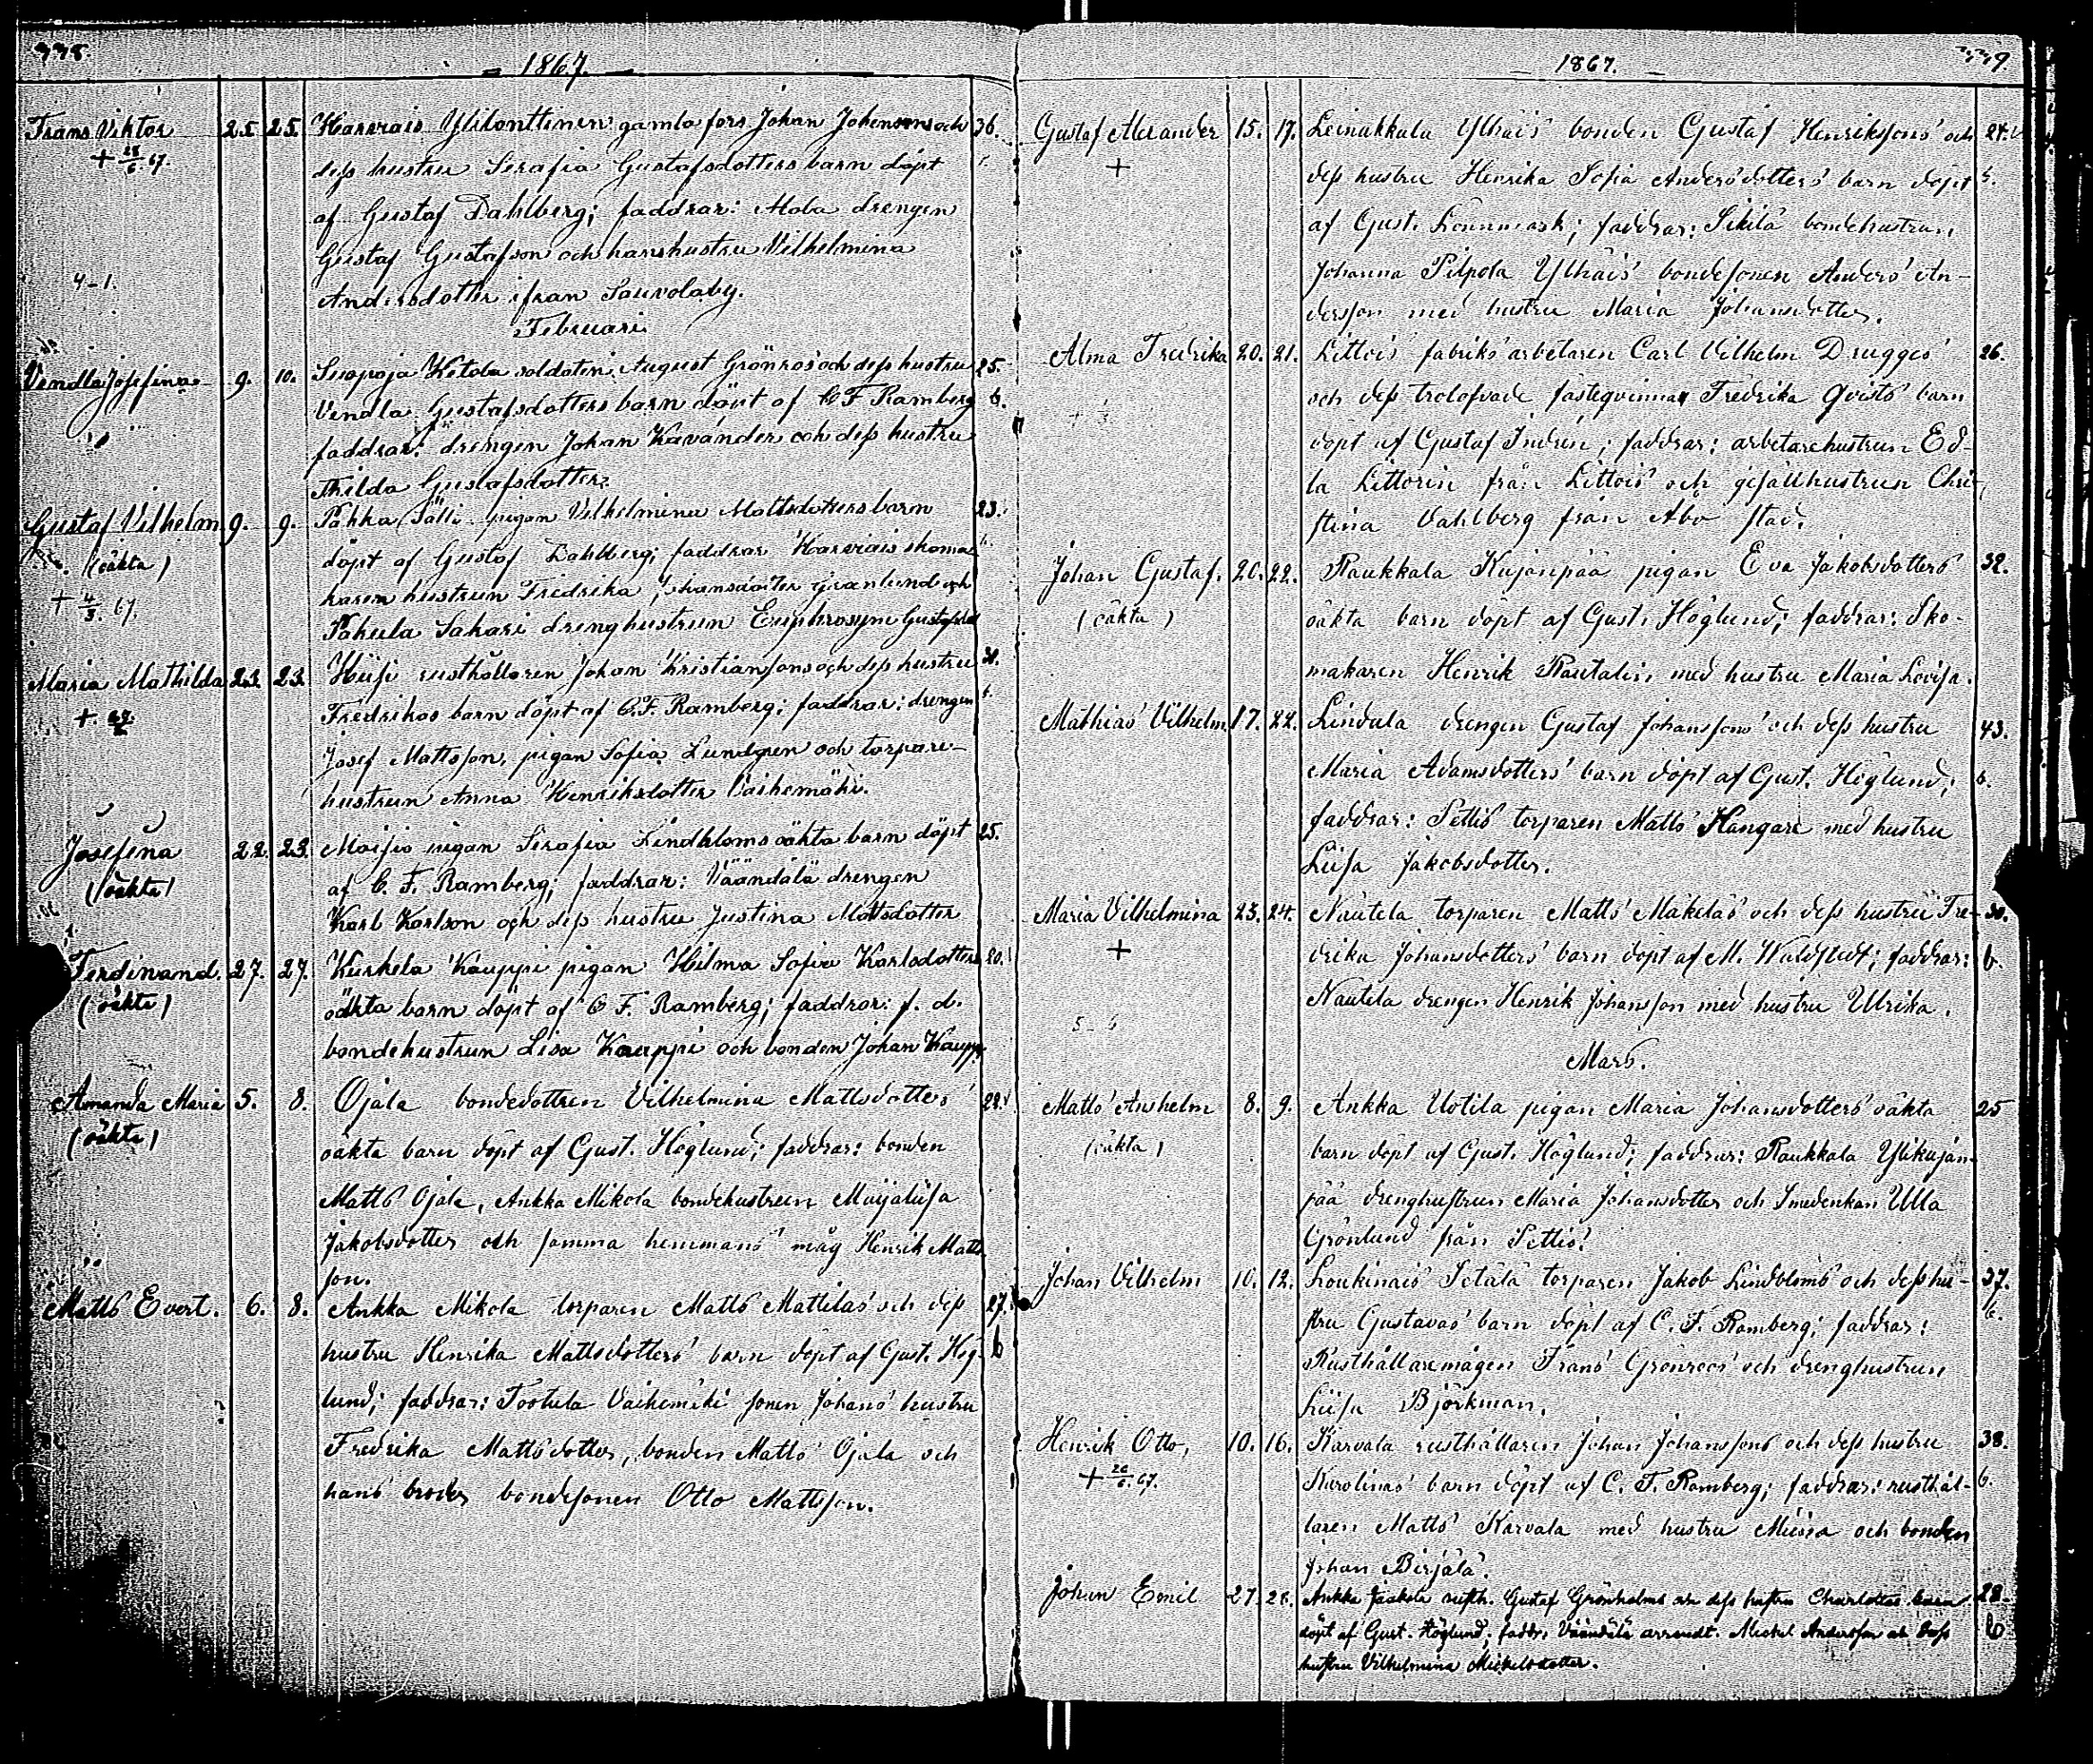 1867.
Frans Viktor 25. 25. Harvais Ylilonttinen gamla fors Johan Johansons och 36.
+ 28/6 67. dess hustru Serafia Gustafsdotters barn döpt
af Gustaf Dahlberg; faddrar: Moba drengen
Gustaf Gustafson och hans hustru Vilhelmina
4-1. Andersdotter ifran Sauvolaby.
Februari
Vendla Josefina 9. 10. Ketola soldaten August Grönros och dess hustru 25.
Vendla Gustafsdotters barn döpt af C F Ramberg 6.
faddrar: drengen Johan Kavánder och dess hustru
Thilda Gustafsdotter.
Gustaf Vilhelm 9. 9. Pahka Sälli pigan Vilhelmina Mattsdotters barn 23.
(oäkta) döpt af Gustaf Dahlberg; faddrar Harvais skoma
+ 4/3. 67. karen hustrun Fredrika Johansdotter Granlund och
Pahula Sakari drenghustrun Euphrosyne Gustafsdot
Maria Mathilda 23. 23. Hiisi rusthållaren Johan Kristiansons och dess hustru 30.
+ Fredrikas barn döpt af C.F. Ramberg; faddrar: drengen 6.
Josef Mattsson, pigan Sofia Lundgren och torpare-
hustrun Anna Henriksdotter Vaihemäki.
Josefina 22. 23. Moisio pigan Serafia Lindbloms oäkta barn döpt 25.
(oäkta) af C. F. Ramberg; faddrar: Väändälä drengen
Karl Karlson och dess hustru Justina Mattsdotter
Ferdinand. 27. 27. Kurkela Kauppi pigan Hilma Sofia Karlsdotters 20.
(oäkta) oäkta barn döpt af C F. Ramberg; faddrar: f. d.
bondehustrun Lisa Kauppi och bonden Johan Kaupp
Amanda Maria 5. 8. Ojala bondedottren Vilhelmina Mattsdotters 28.
(oäkta) oäkta barn döpt af Gust. Höglund; faddrar: bonden
Matts Ojala, Ankka Mikola bondehustrun Maijaliisa
Jakobsdotter och samma hemmans måg Henrik Matts
son.
Matts Evert. 6. 8. Ankka Mikola torparen Matts Mattilas och dess 27.
hustru Henrika Mattsdotters barn döpt af Gust. Hög- b
lund; faddrar: Tootula Vaihemäki sonen Johans hustru
Fredrika Mattsdotter, bonden Matts Ojala och
hans broder bondesonen Otto Mattsson.
1867. 339.
Gustaf Alexander 15. 17. Leinakkala Ylhäis bonden Gustaf Henrikssons och 27.
+ dess hustru Henrika Sofia Andersdotters barn döpt 6.
af Gust. Lönnmark; faddrar: Sikilä bondehustrun
Johanna Pilpola Ylhäis bondesonen Anders An-
dersson med hustru Maria Johansdotter.
Alma Fredrika 20. 21. Littois fabriks arbetaren Carl Vilhelm Drugges 26.
och dess trolofvade fästeqvinna Fredrika Qvists barn
döpt af Gustaf Indrén; faddrar: arbetarehustrun Ed-
la Littorin från Littois och gesällhustrun Chri-
stina Vahlberg från Åbo stad.
Johan Gustaf. 20. 22. Raukkala Kujanpää pigan Eva Jakobsdotters 32.
(oäkta) oäkta barn döpt af Gust. Höglund; faddrar: Sko-
makaren Henrik Rautalin, med hustru Maria Lovisa.
Mathias Vilhelm. 17. 22. Lindula drengen Gustaf Johanssons och dess hustru 43.
Maria Adamsdotters barn döpt af Gust. Höglund; 6.
faddrar: Pettis torparen Matts Kangare med hustru
Liisa Jakobsdotter.
Maria Vilhelmina 23. 24. Nautela torparen Matts Mäkeläs och dess hustru Fre- 30.
+ drika Johansdotters barn döpt af M. Waldstedt; faddrar: 6.
Nautela drengen Henrik Johansson med hustru Ulrika.
Mars.
Matts Anshelm 8. 9. Ankka Uotila pigan Maria Johansdotters oäkta 25
(oäkta) barn döpt af Gust. Höglund; faddrar: Raukkala Ylikujan-
pää drenghustrun Maria Johansdotter och Smedenkan Ulla
Grönlund från Pettis.
Johan Vilhelm 10. 12. Loukinais Tetälä torparen Jakob Lindbloms och dess hu- 37.
stru Gustavas barn döpt af C. F. Ramberg; faddrar: 6.
Rusthållaremågen Frans Grönroos och drenghustrun
Liisa Björkman.
Henrik Otto, 10. 16. Karvala rusthållaren Johan Johanssons och dess hustru 38.
+ 20/6. 67. Karolinas barn döpt af C. F. Ramberg; faddrar: rusthål- 6.
laren Matts Karvala med hustru Miina och bonden
Johan Birjälä.
Johan Emil 27. 28. Ankka Jaakola rusth. Gustaf Grönholms och dess hustru Charlottas barn 28.
döpt af Gust. Höglund; faddr. Väändälä arrendt. Mickel Andersson och dess b
hustru Vilhelmina Mickelsdotter.